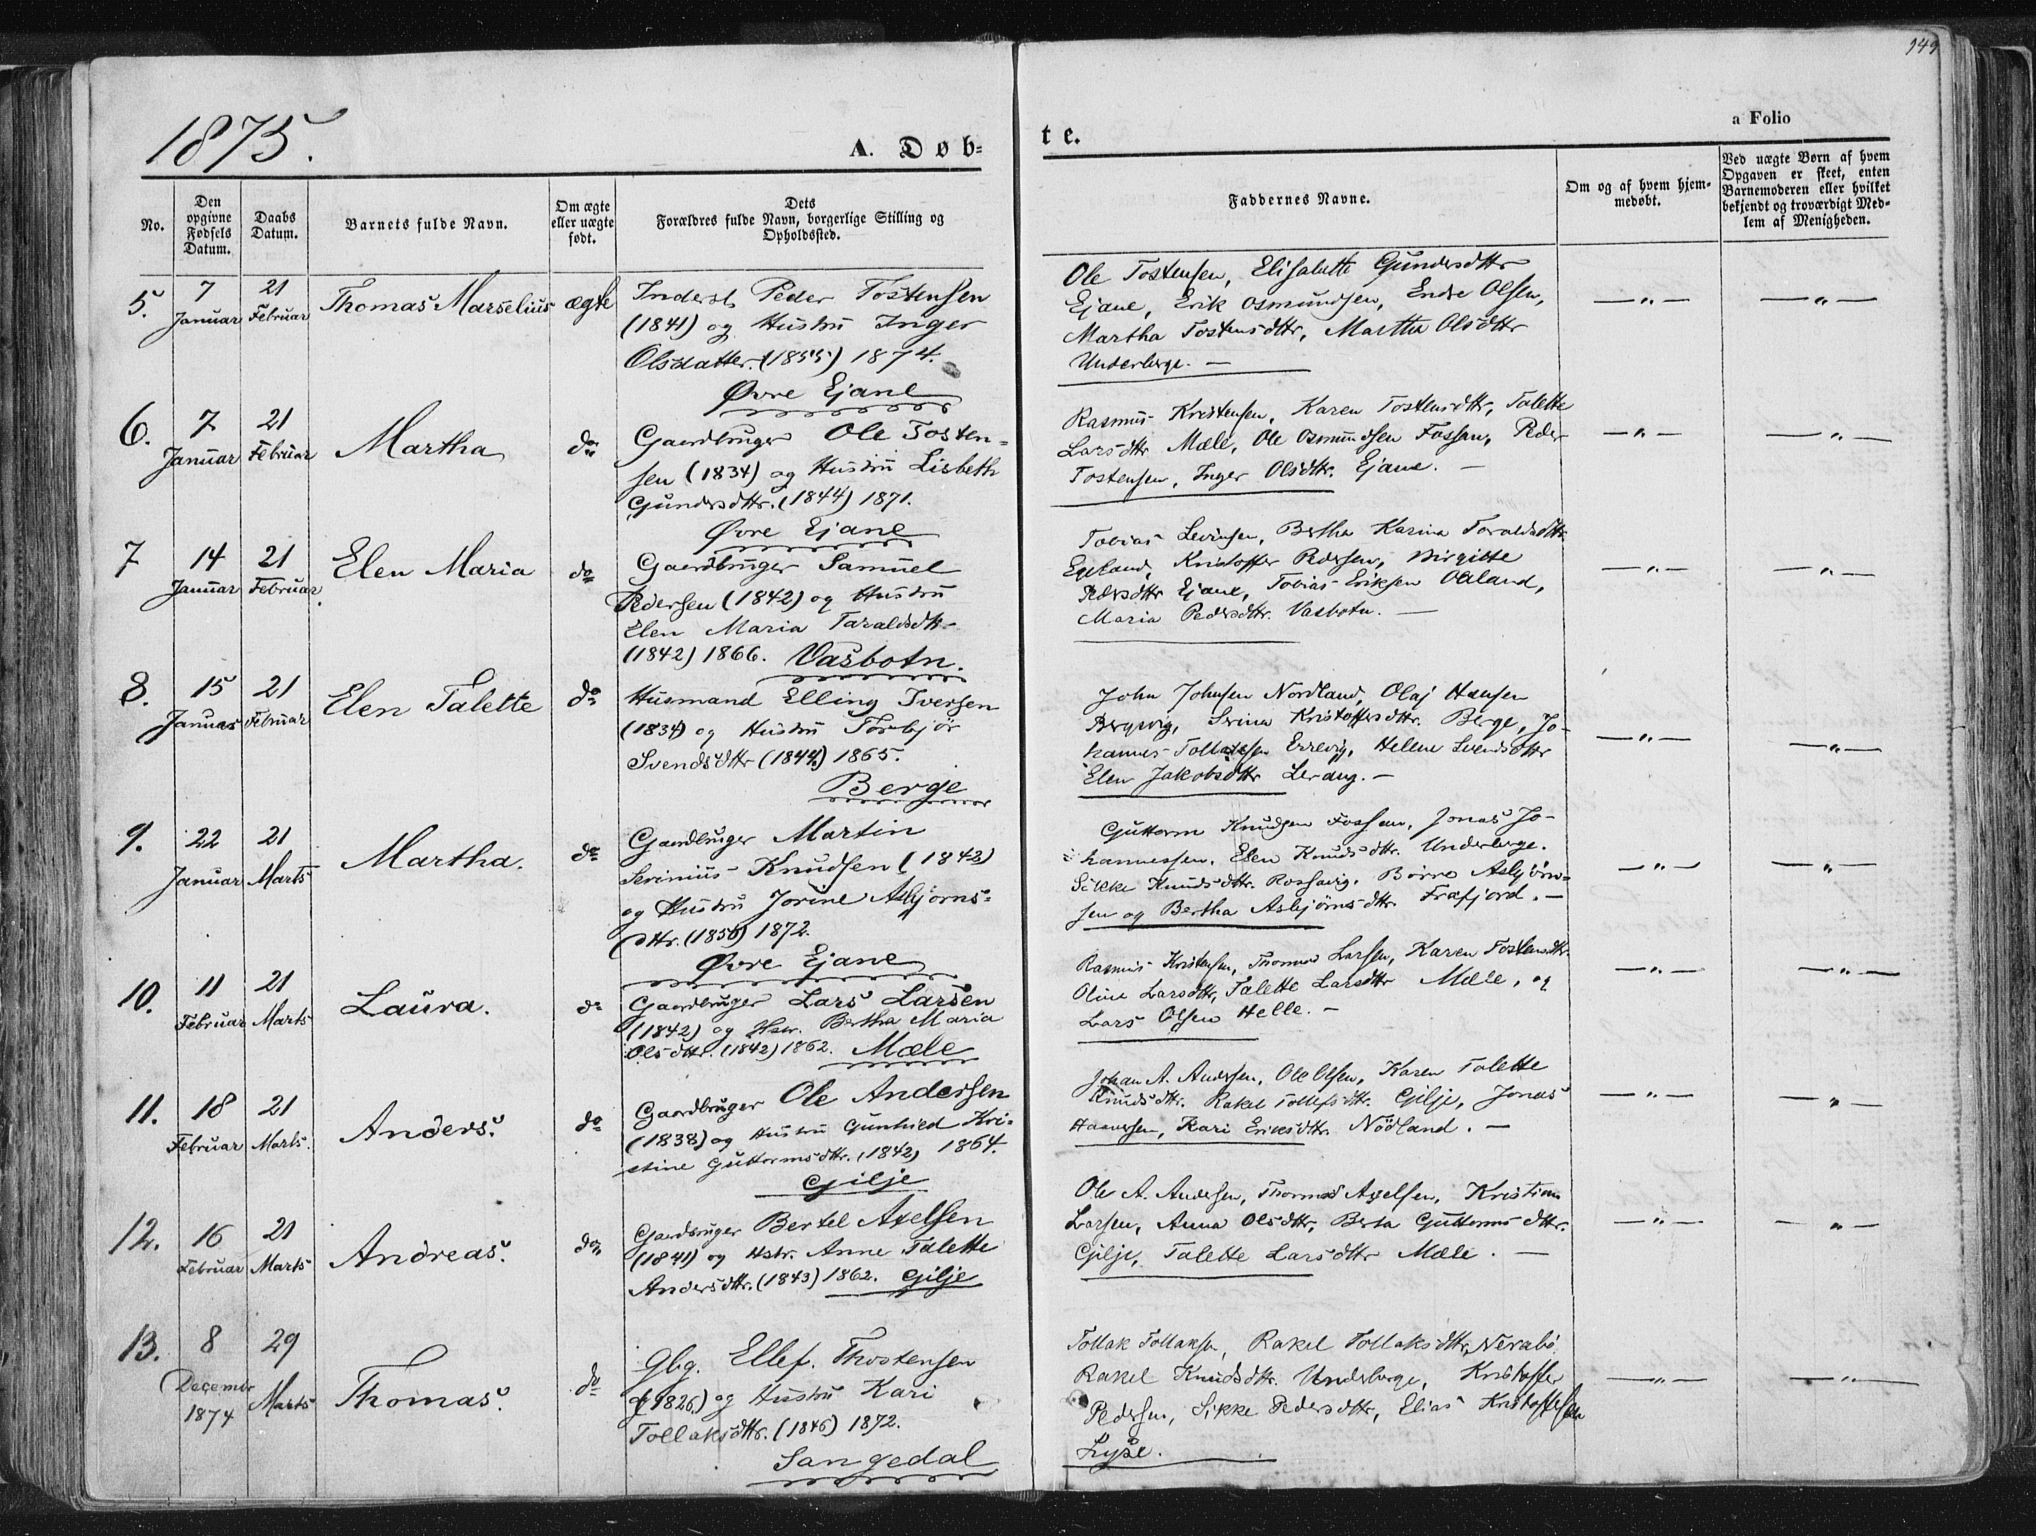 949
1875.
A. Døb-
te.
a Folio
No.
Den
opgivne
Fødsels
Datum.
Daabs
Datum.
Barnets fulde Navn.
Om ægte
eller uægte
født.
Dets
Forældres fulde Navn, borgerlige Stilling og
Opholdssted.
Faddernes Navne.
Om og af hvem hjem-
medøbt.
Ved uægte Børn af hvem
Opgaven er skeet, enten
Barnemoderen eller hvilket
bekjendt og troværdigt Med-
lem af Menigheden.
5.
7
Januar
21
Februar
Thomas Marselius
ægte
Inderst Peder Tostensen
(1841) og Hustru Inger
Olsdatter. (1855) 1874.
Øvre Ejane
Ole Tostensen, Elisabette Gundersdttr
Ejane, Erik Osmundsen, Endre Olsen,
Martha Tostensdttr, Martha Olsdttr
Underberge. —
— „ —
— „ —
6.
7
Januar
21
Februar
Martha
do
Gaardbruger Ole Tosten-
sen (1834) og Hustru Lisbeth
Gundersdttr. (1844) 1871.
Øvre Ejane
Rasmus Kristensen, Karen Tostensdttr, Talette
Larsdttr Mæle, Ole Osmundsen Fossan, Peder
Tostensen, Inger Olsdttr. Ejane. —
— „ —
— „ —
7
14
Januar
21
Februar.
Elen Maria
do
Gaardbruger Samuel
Pedersen (1842) og Hustru
Elen Maria Taraldsdtr
(1842) 1866. Vasbotn.
Tobias Levinsen, Bertha Karina Taraldsdttr
Kristoffer Pedersen, Birgitte
Pedersdttr Ejane, Tobias Eriksen
Maria Pedersdttr. Vasbotn. —
— „ —
— „ —
8.
15
Januar
21
Februar
Elen Talette
do
Husmand Elling Iversen
(1834) og Hustru Torbjør
Svendsdttr (1844) 1865.
Berge
John Johnsen Nordland, Olaj Hansen
Bergevig, Serina Kristoffersdttr. Berge, Jo-
hannes Tollaksen Errevig, Helene Svendsdttr
Elen Jakobsdttr Lerang. —
— „ —
— „ —
9.
22
Januar
21
Marts
Martha.
do
Gaardbruger Martin
Serinius Knudsen (1842)
og Hustru Jorine Asbjørns-
dttr. (1850) 1872.
Øvre Ejane
Guttorm Knudsen Fossan, Jonas Jo-
hannessen, Elen Knudsdttr. Underberge.
Sikke Knudsdttr. Rossavig, Børre Asbjørn-
sen og Bertha Asbjørnsdttr. Frafjord. —
— „ —
— „ —
10.
11
Februar
21
Marts
Laura.
do
Gaardbruger Lars Larsen
(1842) og Hstr. Bertha Maria
Olsdttr. (1842) 1862. Mæle
Rasmus Kristensen, Thomas Larsen, Karen Tostensdttr.
Oline Larsdttr, Talette Larsdttr Mæle, og
Lars Olsen Helle. —
— „ —
— „ —
11.
18
Februar
21
Marts.
Anders.
do
Gaardbruger Ole Andersen
(1838) og Hustru Gunhild Kri-
stine Guttormsdttr. (1842) 1864.
Gilje
Johan A. Andersen, Ole Olsen, Karen Talette
Knudsdttr. Rakel Tollefsdttr. Gilje, Jonas
Kari Eriksdttr. Nödland. —
— „ —
— „ —
12.
16
Februar
21
Marts
Andreas.
do
Gaardbruger Bertel Axelsen
(1841) og Hstr. Anne Talette
Andersdttr. (1843) 1862. Gilje
Ole A. Andersen, Thomas Axelsen, Kristian
Larsen, Anna Olsdttr, Berta Guttormsdttr.
Gilje, Talette Larsdttr Mæle. —
— „ —
— „ —
13.
8
Decembr
1874
29
Marts
Thomas.
do
Gbg. Ellef. Thostensen
(1826) og Hustru Kari
Tollaksdttr. (1846) 1872.
Sangedal
Tollak Tollaksen, Rakel Tollaksdttr, Nerabø.
Rakel Knudsdttr. Underberge, Kristoffer
Pedersen, Sikke Pedersdttr, Elias Kristoffersen
Lyse.
— „ —
— „ —